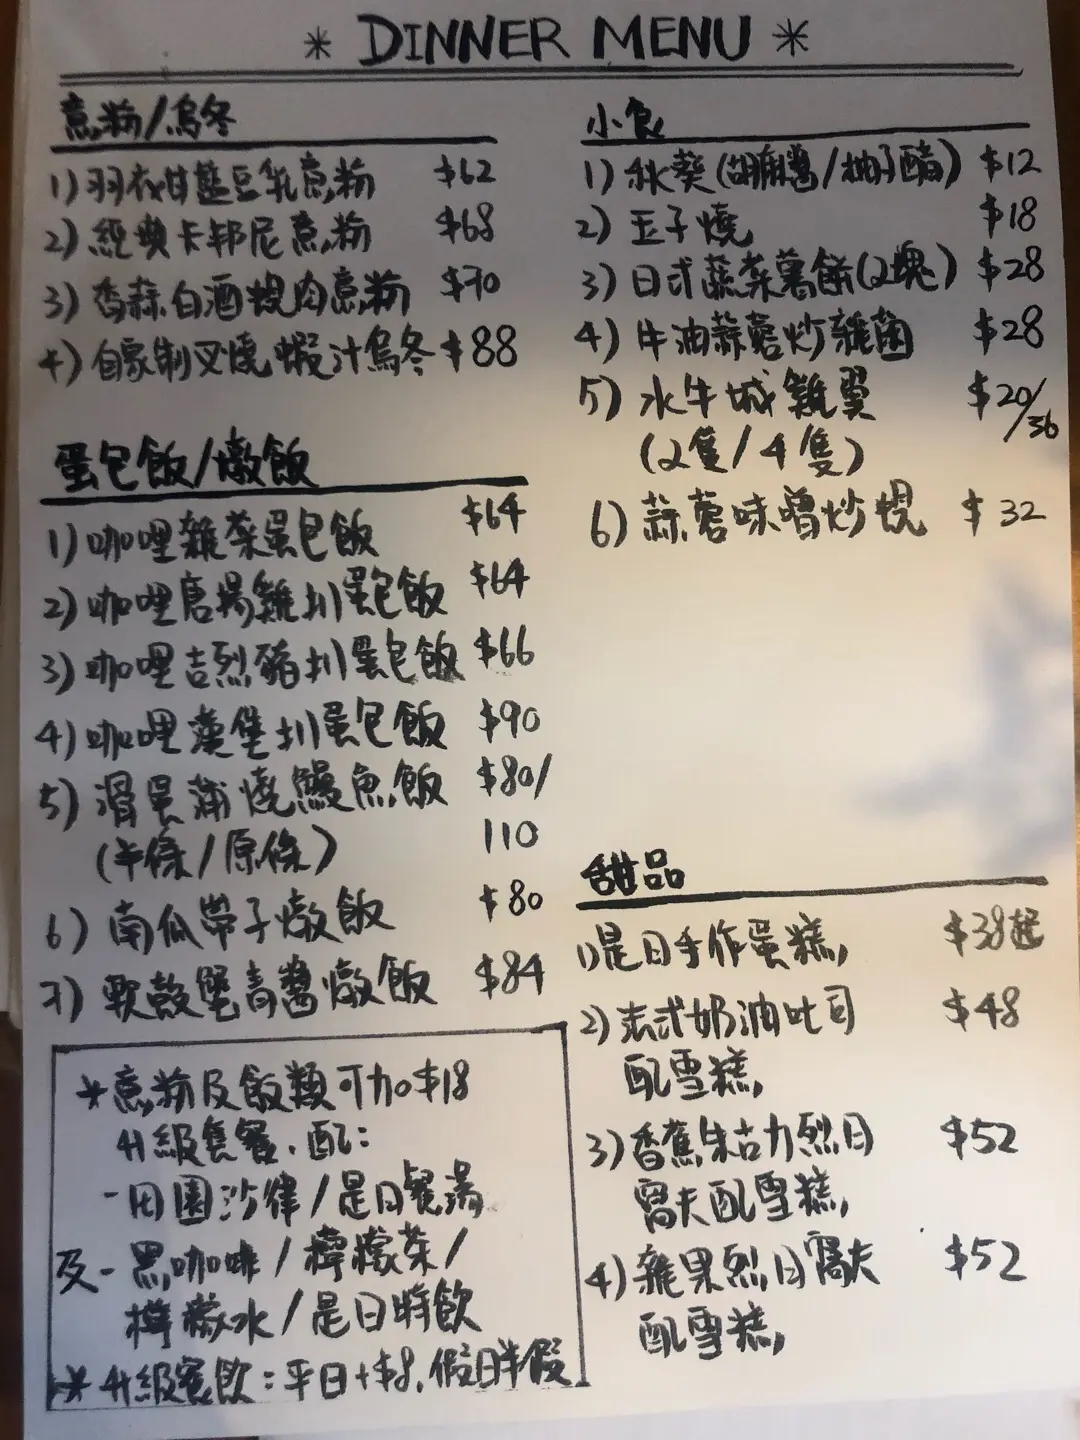 * DINNER MENU *
意粉/烏冬
1) 羽衣甘藍豆乳意粉 $62
2) 經典卡邦尼意粉 $68
3) 香蒜白酒蜆肉意粉 $70
4) 自家制叉燒蝦汁烏冬 $88
蛋包飯/燉飯
1) 咖哩雜菜蛋包飯 $64
2) 咖哩唐揚雞扒蛋包飯 $64
3) 咖哩吉烈豬扒蛋包飯 $66
4) 咖哩漢堡扒蛋包飯 $90
5) 滑蛋蒲燒鰻魚飯 $80/
(半條/原條) 110
6) 南瓜帶子燉飯 $80
7) 軟殼蟹青醬燉飯 $84
*意粉及飯類可加$18
升級套餐.配:
-田園沙律/是日餐湯
及-黑咖啡/檸檬茶/
檸檬水/是日特飲
*升級餐飲:平日+$8,假日半假
小食
1) 秋葵(胡麻醬/柚子醋) $12
2) 玉子燒 $18
3) 日式蔬菜薯餅(2塊) $28
4) 牛油蒜蓉炒雜菌 $28
5) 水牛城雞翼 $20/36
(2隻/4隻)
6) 蒜蓉味噌炒蜆 $32
甜品
1)是日手作蛋糕 $38起
2)法式奶油吐司 $48
配雪糕
3)香蕉朱古力烈日 $52
窩夫配雪糕
4)雜果烈日窩夫 $52
配雪糕